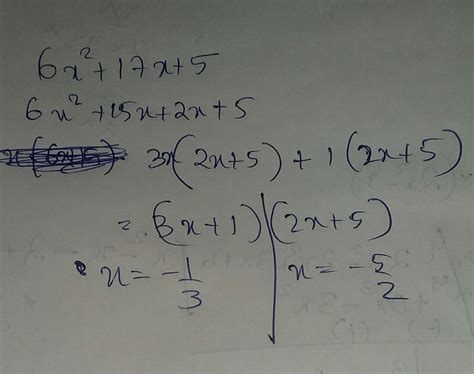 6x²+17x+5
6x²+15x+2x+5
3x(2x+5)+1(2x+5)
= (3x+1)(2x+5)
x=-1/3 x=-5/2